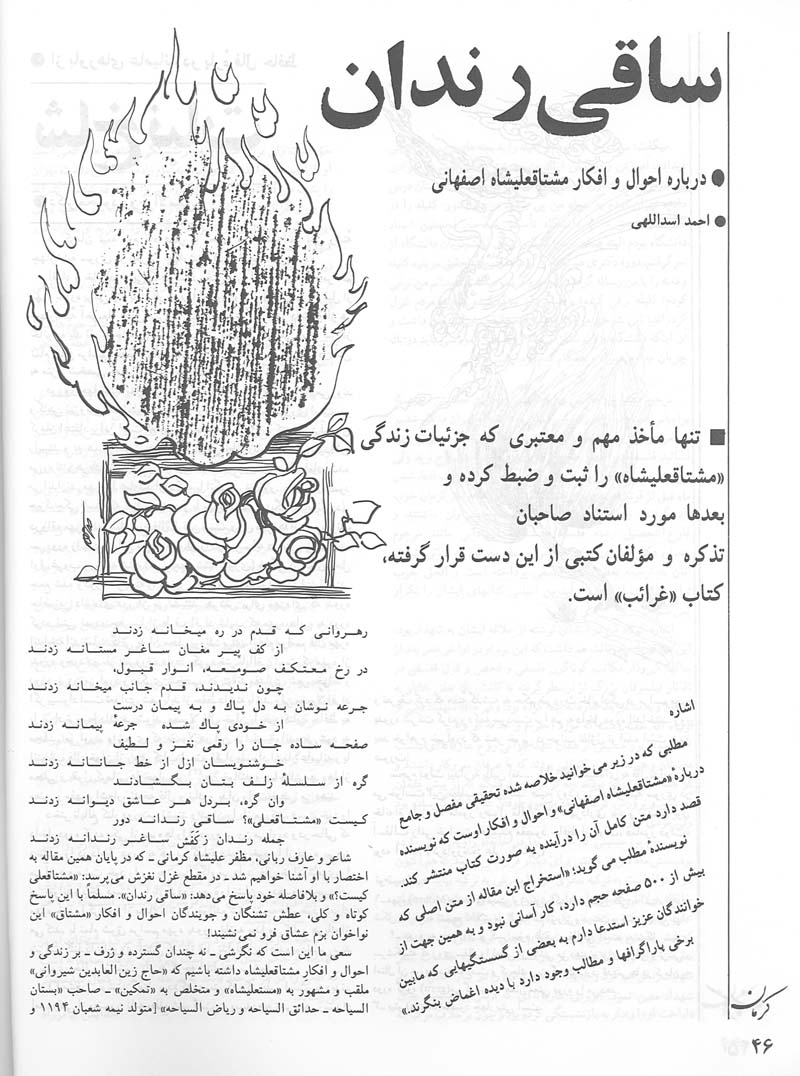 ساقی رندان
● درباره احوال و افکار مشتاقعلیشاه اصفهانی
● احمد اسداللهی
■ تنها مأخذ مهم و معتبری که جزئیات زندگی
«مشتاقعلیشاه» را ثبت و ضبط کرده و
بعدها مورد استناد صاحبان
تذکره و مؤلفان کتبی از این دست قرار گرفته،
کتاب «غرائب» است.
اشاره
مطلبی که در زیر می‌خوانید خلاصه شده تحقیقی مفصل و جامع
دربارهٔ «مشتاقعلیشاه اصفهانی» و احوال و افکار اوست که نویسنده
قصد دارد متن کامل آن را درآینده به صورت کتاب منتشر کند.
نویسندهٔ مطلب می گوید: «استخراج این مقاله از متن اصلی که
بیش از ۵۰۰ صفحه حجم دارد، کار آسانی نبود و به همین جهت از
خوانندگان عزیز استدعا دارم به بعضی از گسستگیهایی که مابین
برخی پاراگرافها و مطالب وجود دارد با دیده اغماض بنگرند.»
رهـروانی کـه قـدم در ره میخـانـه زدنـد
از کف پیـر مغـان سـاغـر مستـانـه زدنـد
در رخ معـتکـف صـومعـه، انـوار قبـول،
چـون ندیـدنـد، قـدم جانب میخانه زدند
جـرعه نوشان به دل پاك و به پیمان درست
از خـودی پاك شده جرعهٔ پیمانـه زدند
صفحـه سـاده جـان را رقمی نغـز و لطیف
خـوشنویسـان ازل از خط جانـانـه زدنـد
گره از سلسلهٔ زلف بتـان بگـشـادنـد
وان گره، بـردل هـر عاشق دیـوانـه زدند
کیست «مشتـاقعلی»؟ ساقی رندانـه دور
جمله رندان ز کَفَش ساغـر رندانـه زدند
شاعر و عارف ربانی، مظفر علیشاه کرمانی ـ که در پایان همین مقاله به
اختصار با او آشنا خواهیم شد ـ در مقطع غزل نغزش می‌پرسد: «مشتاقعلی
کیست؟» و بلافاصله خود پاسخ می‌دهد: «ساقی رندان». مسلماً با این پاسخ
کوتاه و کلی، عطش تشنگان و جویندگان احوال و افکار «مشتاق» این
نواخوان بزم عشاق فرو نمی‌نشیند!
سعی ما این است که نگرشی ـ نه چندان گسترده و ژرف ـ بر زندگی و
احوال و افکار مشتاقعلیشاه داشته باشیم که «حاج زین العابدین شیروانی»
ملقب و مشهور به «مستعلیشاه» و متخلص به «تمکین» ـ صاحب «بستان
السیاحه ـ حدائق السیاحه و ریاض السیاحه» [متولد نیمه شعبان ۱۱۹۴ و
کرمان
۴۶